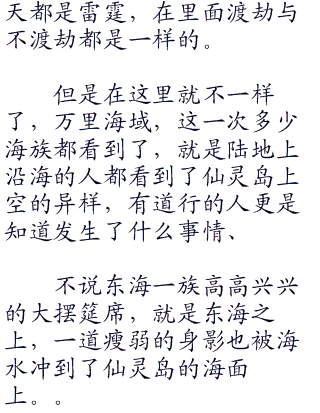 天都是雷霆，在里面渡劫与
不渡劫都是一样的。
但是在这里就不一样
了，万里海域，这一次多少
海族都看到了，就是陆地上
沿海的人都看到了仙灵岛上
空的异样，有道行的人更是
知道发生了什么事情、
不说东海一族高高兴兴
的大摆筵席，就是东海之
上，一道瘦弱的身影也被海
水冲到了仙灵岛的海面
上。。